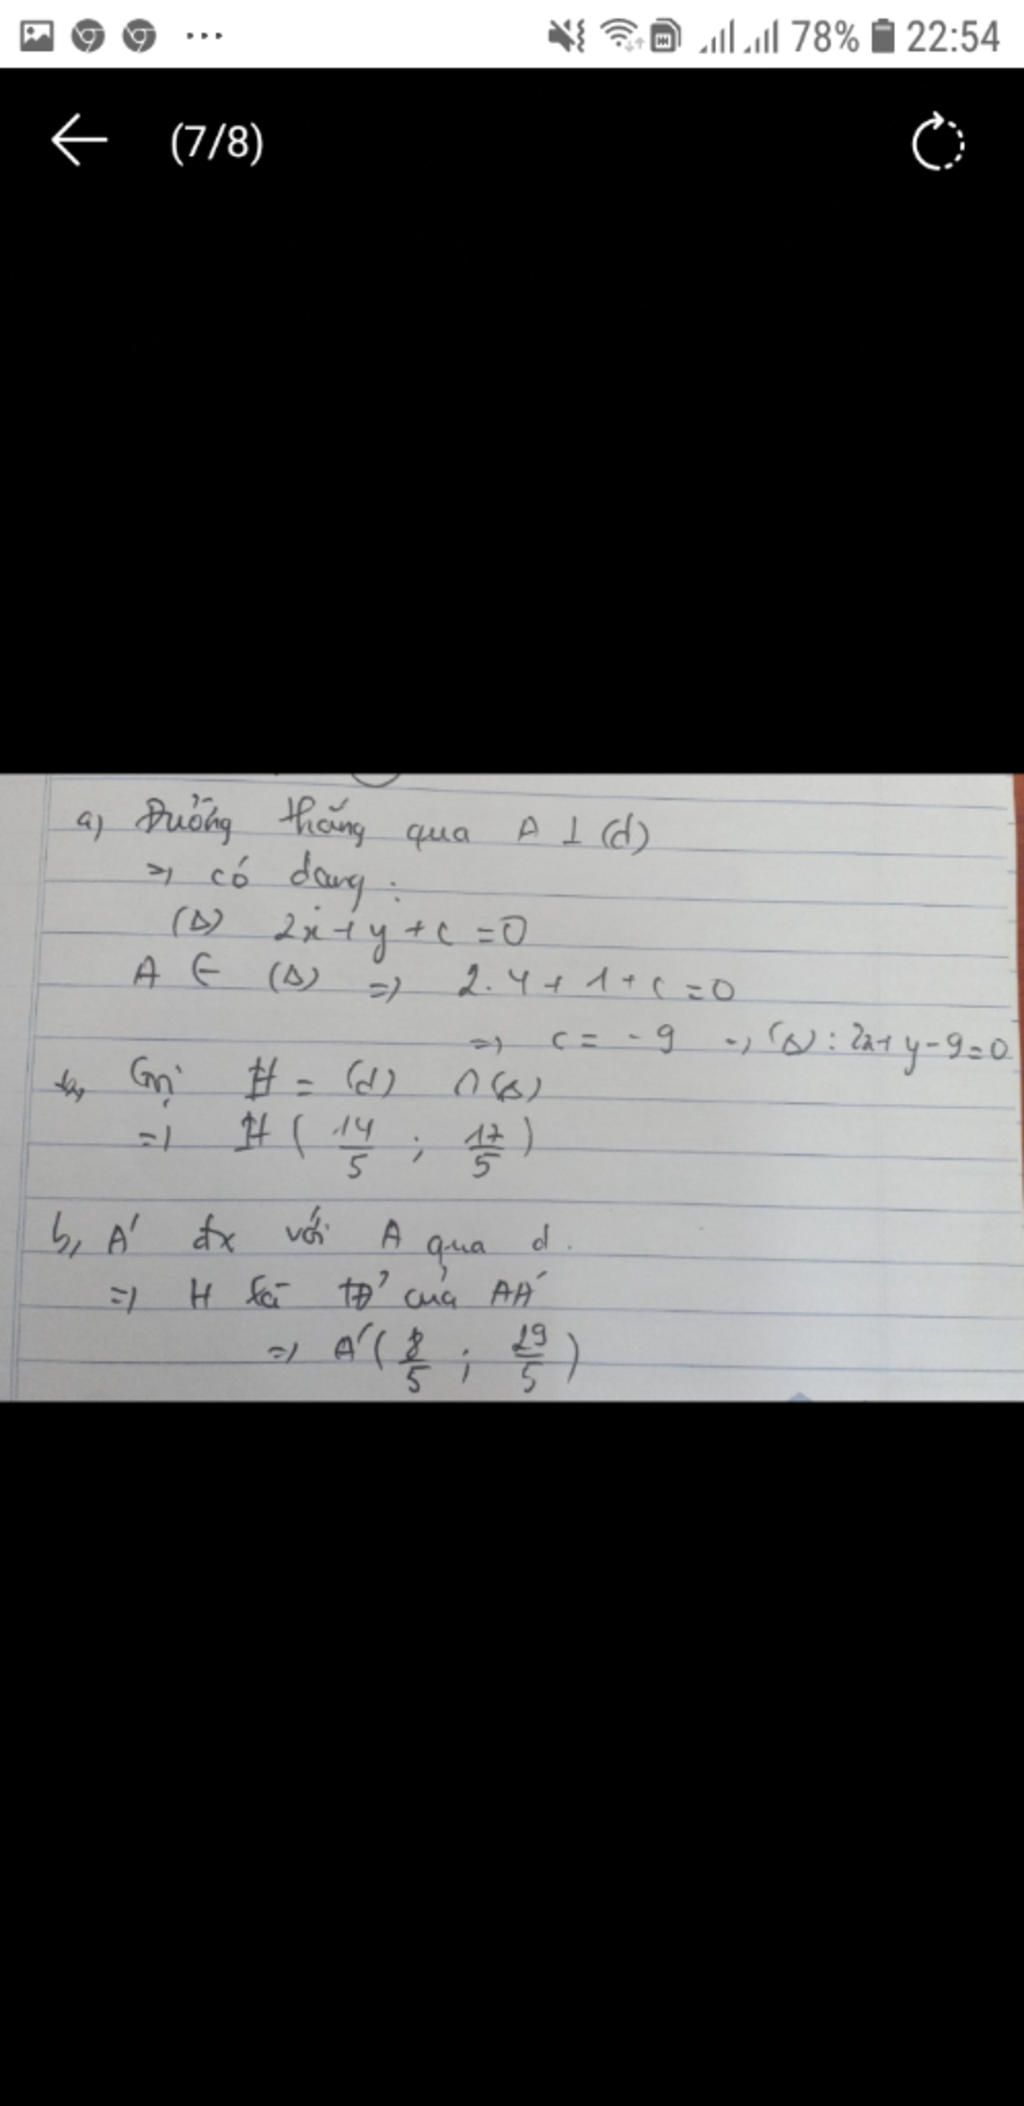 78% 22:54
(7/8)
a) Đường thẳng qua A ⊥ (d)
=> có dạng :
(Δ) 2x + y + c = 0
A ∈ (Δ) => 2.4 + 1 + c = 0
=> c = -9 => (Δ): 2x + y - 9 = 0
Gọi H = (d) ∩ (Δ)
=> H ( 14/5 ; 17/5 )
b, A' đx với A qua d.
=> H là tđ' của AA'
=> A' ( 8/5 ; 29/5 )